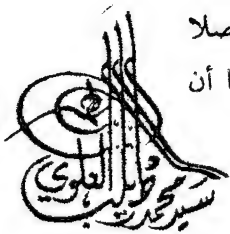 صلا
ا أن
سيد محمد العلوي